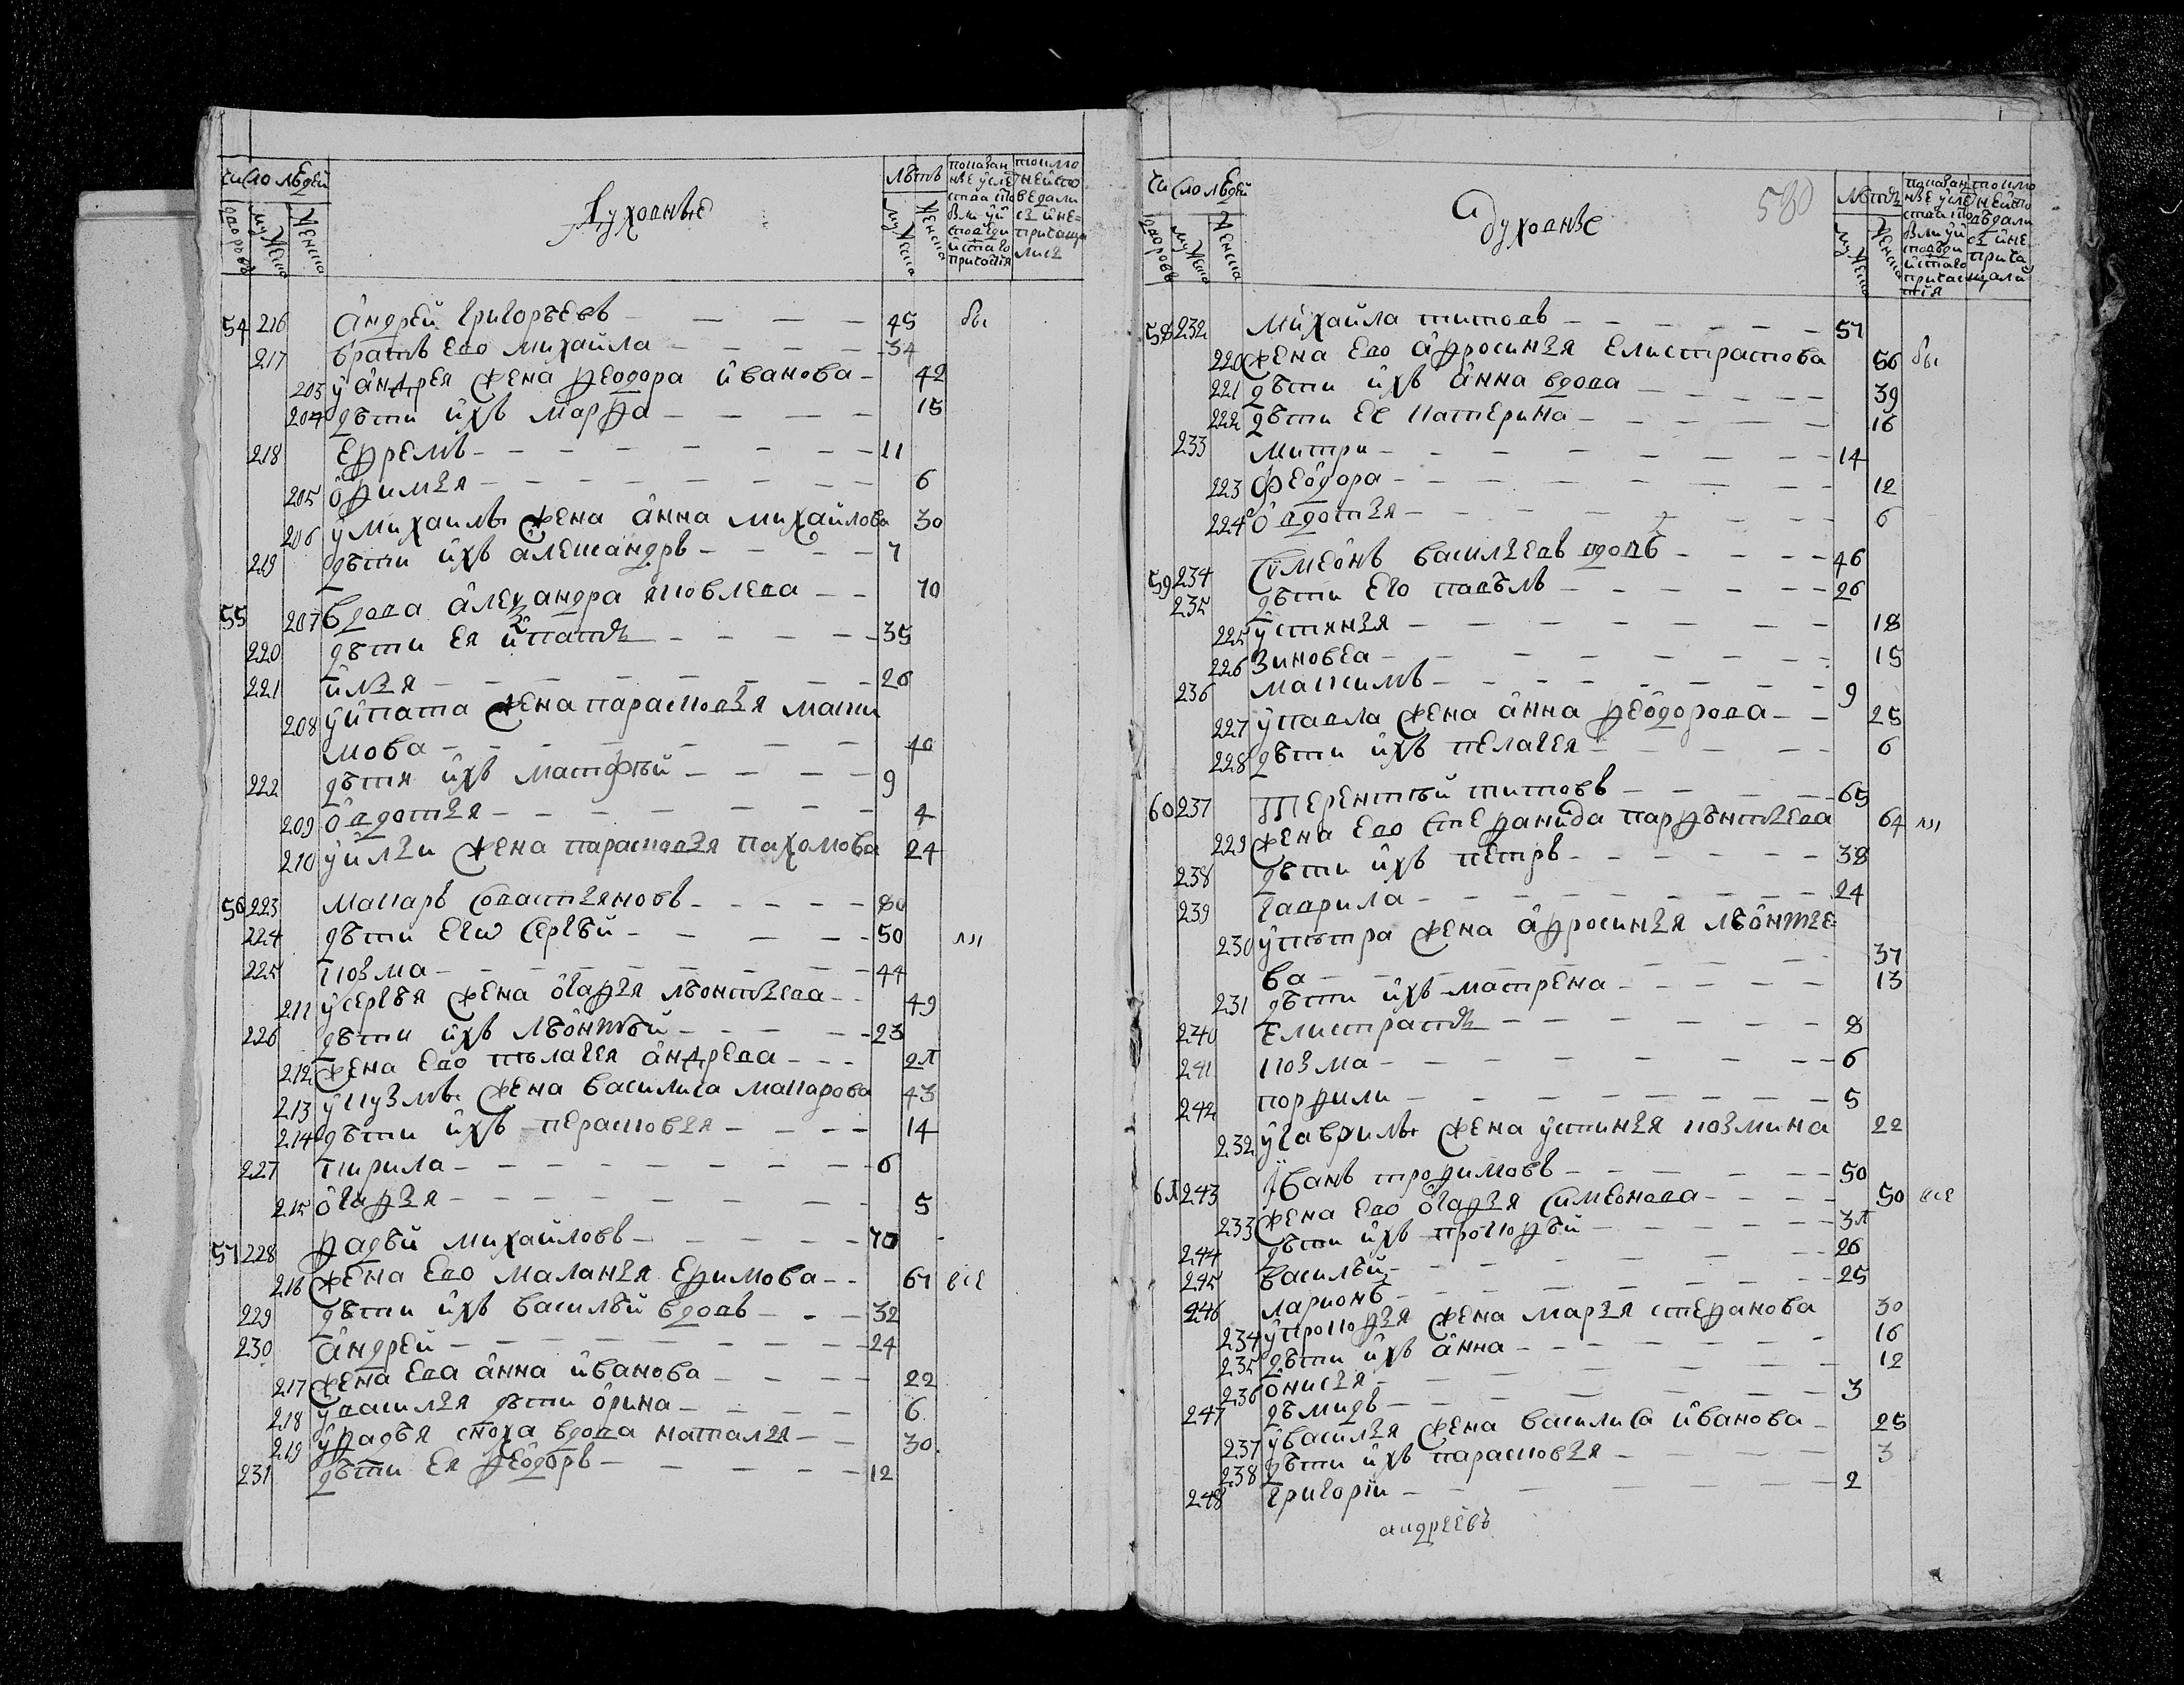 число людей
дворовъ
мужеска
женска
духовные
лѣтъ
мужеска
женска
54 216 андрей григорьевъ 45 бы
217 братъ ево михайла 34
203 у андрея жена феодора иванова 42
204 дѣти ихъ марфа 15
218 ефремъ 11
205 офимья 6
206 у михаилы жена анна михайлова 30
219 дѣти ихъ александръ 7
55 207 вдова александра яковлева 70
220 дѣти ея ипатъ 35
221 илья 26
208 у ипата жена парасковья макси
мова 40
222 дѣтя ихъ матфѣй 9
209 овдотья 4
210 у ильи жена парасковья пахомова 24
56 223 макаръ савастьяновъ 80
224 дѣти его сергѣй 50 ли
225 козма 44
211 у сергѣя жена огафья лѣонтьева 49
226 дѣти ихъ лѣонтѣй 23
212 жена ево пѣлагея андрева 21
213 у кузмы жена василиса макарова 43
214 дѣти ихъ перасковья 14
227 кирила 6
215 огафья 5
57 228 фадѣй михайловъ 70
216 жена ево маланья ефимова 67 все
229 дѣти ихъ василѣй вдовъ 32
230 андрей 24
217 жена ева анна иванова 22
218 у василья дѣти орина 6
219 у фадѣя сноха вдова наталья 30
231 дѣти ея феодоръ 12
число людей
дворовъ
мужеска
женска
духовные
580
лѣтъ
мужеска
женска
58 232 михайла титовъ 57
220 жена ево афросинья елистратова 56 бы
221 дѣти ихъ анна вдова 39
222 дѣти ее катерина 16
233 митри 14
223 феодора 12
224 овдотья 6
59 234 симеонъ васильевъ вдовъ 46
235 дѣти его павѣлъ 26
225 устинья 18
226 зиновеа 15
236 максимъ 9
227 у павла жена анна феодорова 25
228 дѣти ихъ пелагея 6
60 237 терентѣй титовъ 65
229 жена ево стефанида парфѣнтьева 64 ли
238 дѣти ихъ петръ 38
239 гаврила 24
230 у пѣтра жена афросинья лѣонтье
ва 37
231 дѣти ихъ матрена 13
240 елистратъ 8
241 козма 6
242 порфили 5
232 у гаврилы жена устинья козмина 22
61 243 иванъ трофимовъ 50
233 жена ево огафья симеонова 50 все
244 дѣти ихъ прокофѣй 31
245 василѣй 26
246 ларионъ 25
234 у прокофья жена марья стефанова 30
235 дѣти ихъ анна 16
236 онисья 12
247 дѣмидъ 3
237 у василья жена василиса иванова 25
238 дѣти ихъ парасковья 3
248 григорiи 2
андреевъ